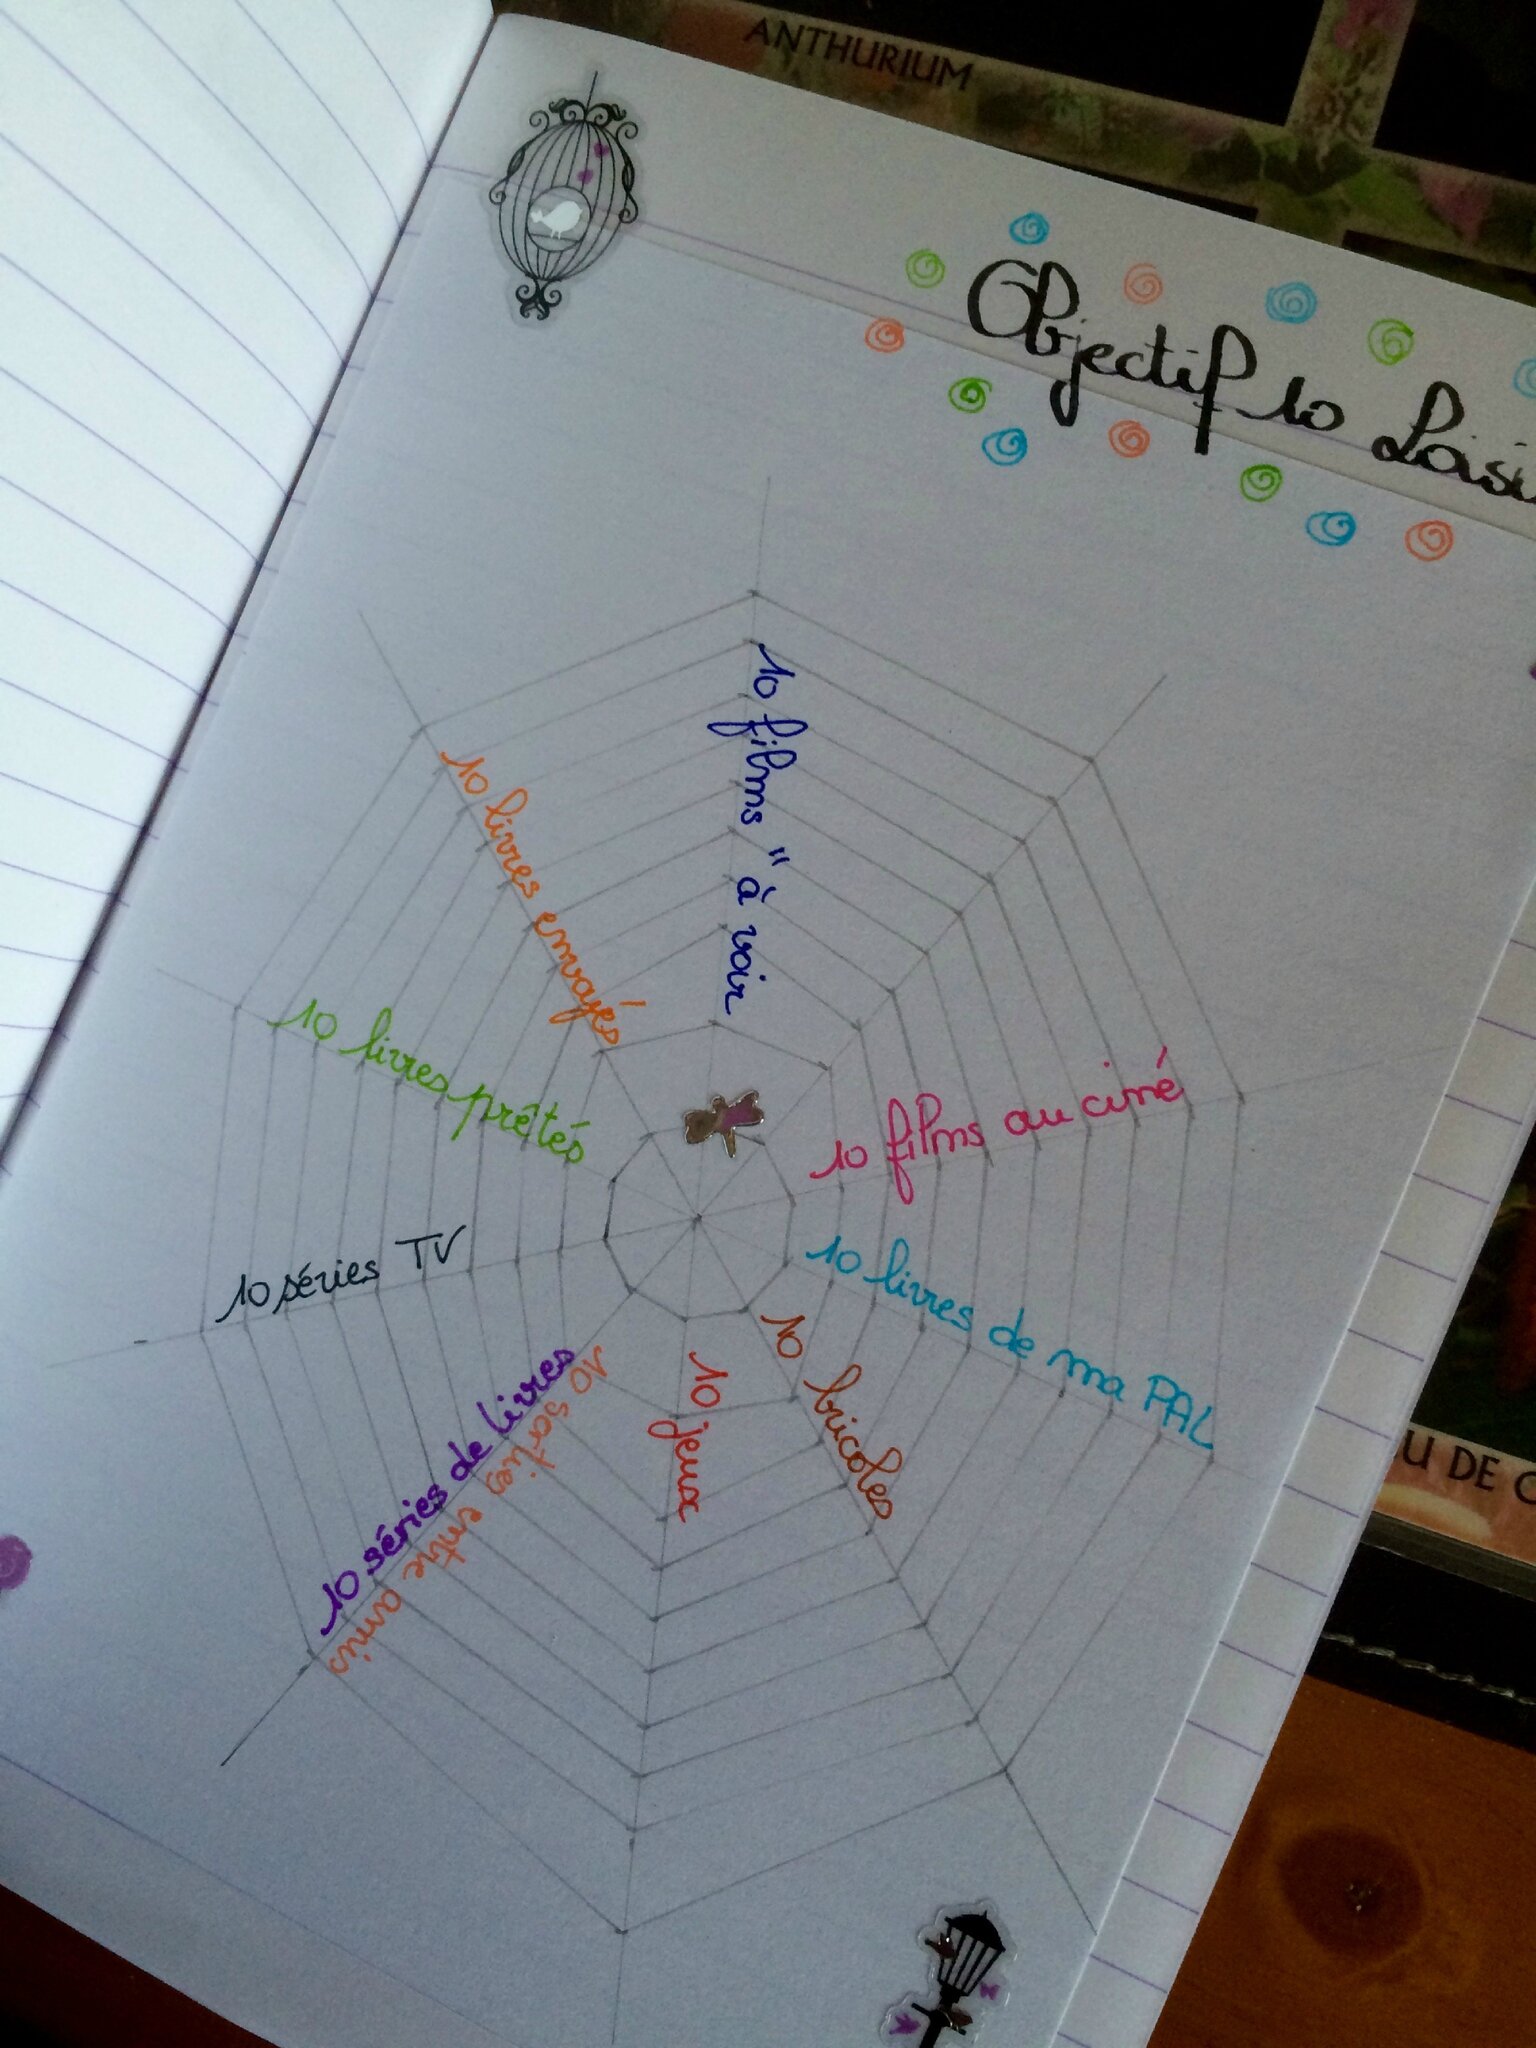 ANTHURIUM
Objectif 10 Loisi
10 films " à voir
10 livres envoyés
10 films au ciné
10 livres prêtés
10 livres de ma PAL
10 séries TV
10 bricoles
10 jeux
10 séries de livres
10 sorties entre amis
U DE C